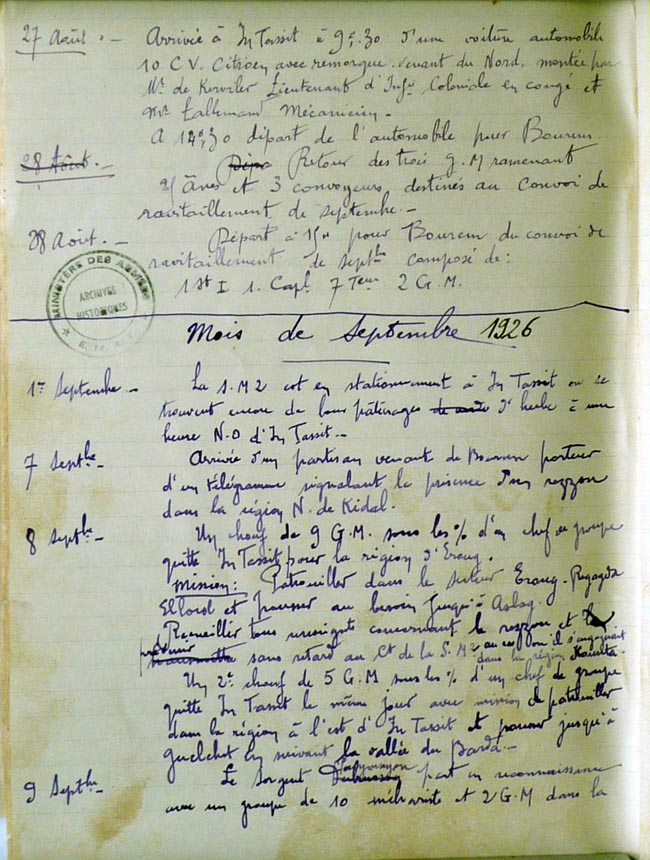 27 Août. - Arrivée à In Tassit à 9h,30 d'une voiture automobile
10 C.V. Citroën avec remorque venant du Nord, montée par
Mr de Kerviler Lieutenant d'Infie Coloniale en congé et
Mr Lallemand Mécanicien.
A 14h,30 départ de l'automobile pour Bourem
28 Août. - Dépa Retour des trois G.M ramenant
ânes et 3 convoyeurs, destinés au Convoi de
ravitaillement de Septembre. -
28 Août. - Départ à 15h pour Bourem du convoi de
ravitaillement de Septbre composé de :
1 St I 1. Capl 7 Teurs 2 G.M.
MINISTERE DES ARMEES
ARCHIVES
HISTORIQUES
E.M.A.T.
Mois de Septembre 1926
1er Septembre - La S.M2 est en stationnement à In Tassit où se
trouvent encore de bons pâturages d'herbe à une
heure N.O d'In Tassit. -
7 Septbre - Arrivée d'un partisan venant de Bourem porteur
d'un télégramme signalant la présence d'un rezzou
dans la région N. de Kidal.
8 Septbre - Un chouf de 9 G.M. sous les % d'un chef de groupe
quitte In Tassit pour la région d'Eroug.
Mission : Patrouiller dans le secteur Eroug-
et pousser au besoin jusqu'à Aslag.
Recueillir tous renseignts concernant le rezzou et
prévenir sans retard au Ct de la S.M2 au cas où il s'engagerait
dans la région
Un 2e chouf de 5 G.M sous les % d'un chef de groupe
quitte In Tassit le même jour avec mission de patrouiller
dans la région à l'est d'In Tassit et pousser jusqu'à
Guelchet en suivant la vallée du
9 Septbre - Le Sergent part en reconnaissance
avec un groupe de 10 méharistes et 2 G.M dans la